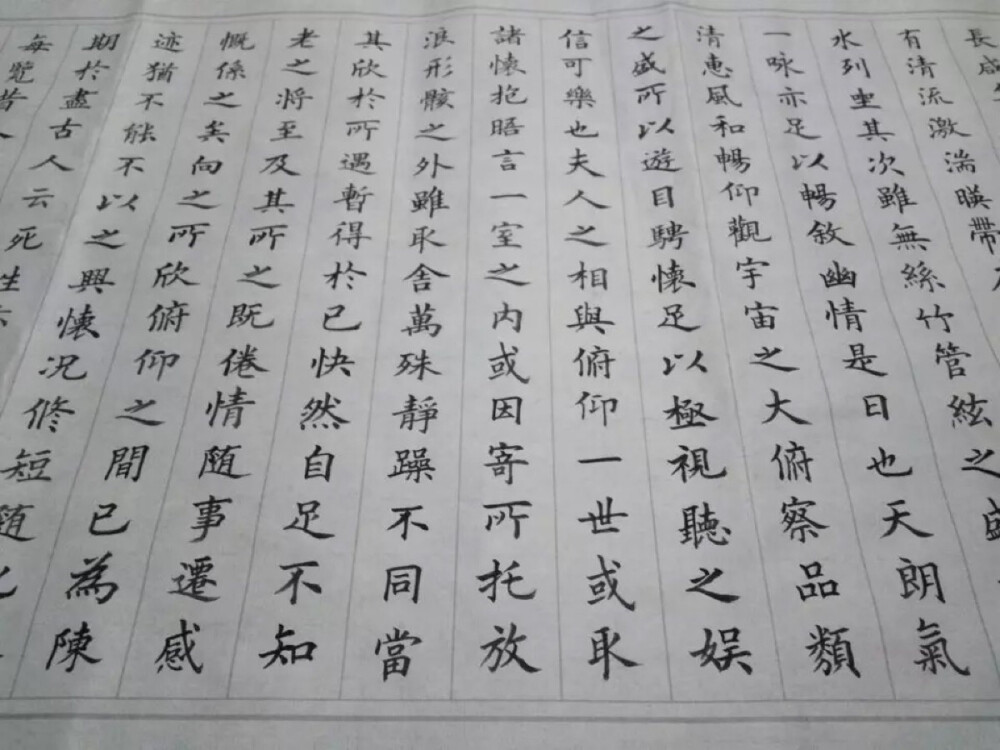 長咸
有清流激湍暎帶
水列坐其次雖無絲竹管絃之盛
一咏亦足以暢敘幽情是日也天朗氣
清惠風和暢仰觀宇宙之大俯察品類
之盛所以遊目騁懷足以極視聽之娱
信可樂也夫人之相與俯仰一世或取
諸懷抱晤言一室之内或因寄所托放
浪形骸之外雖取舍萬殊靜躁不同當
其欣於所遇暫得於己快然自足不知
老之将至及其所之既倦情随事遷感
慨係之矣向之所欣俯仰之間已為陳
迹猶不能不以之興懷况修短随
期於盡古人云死生
每覽昔人